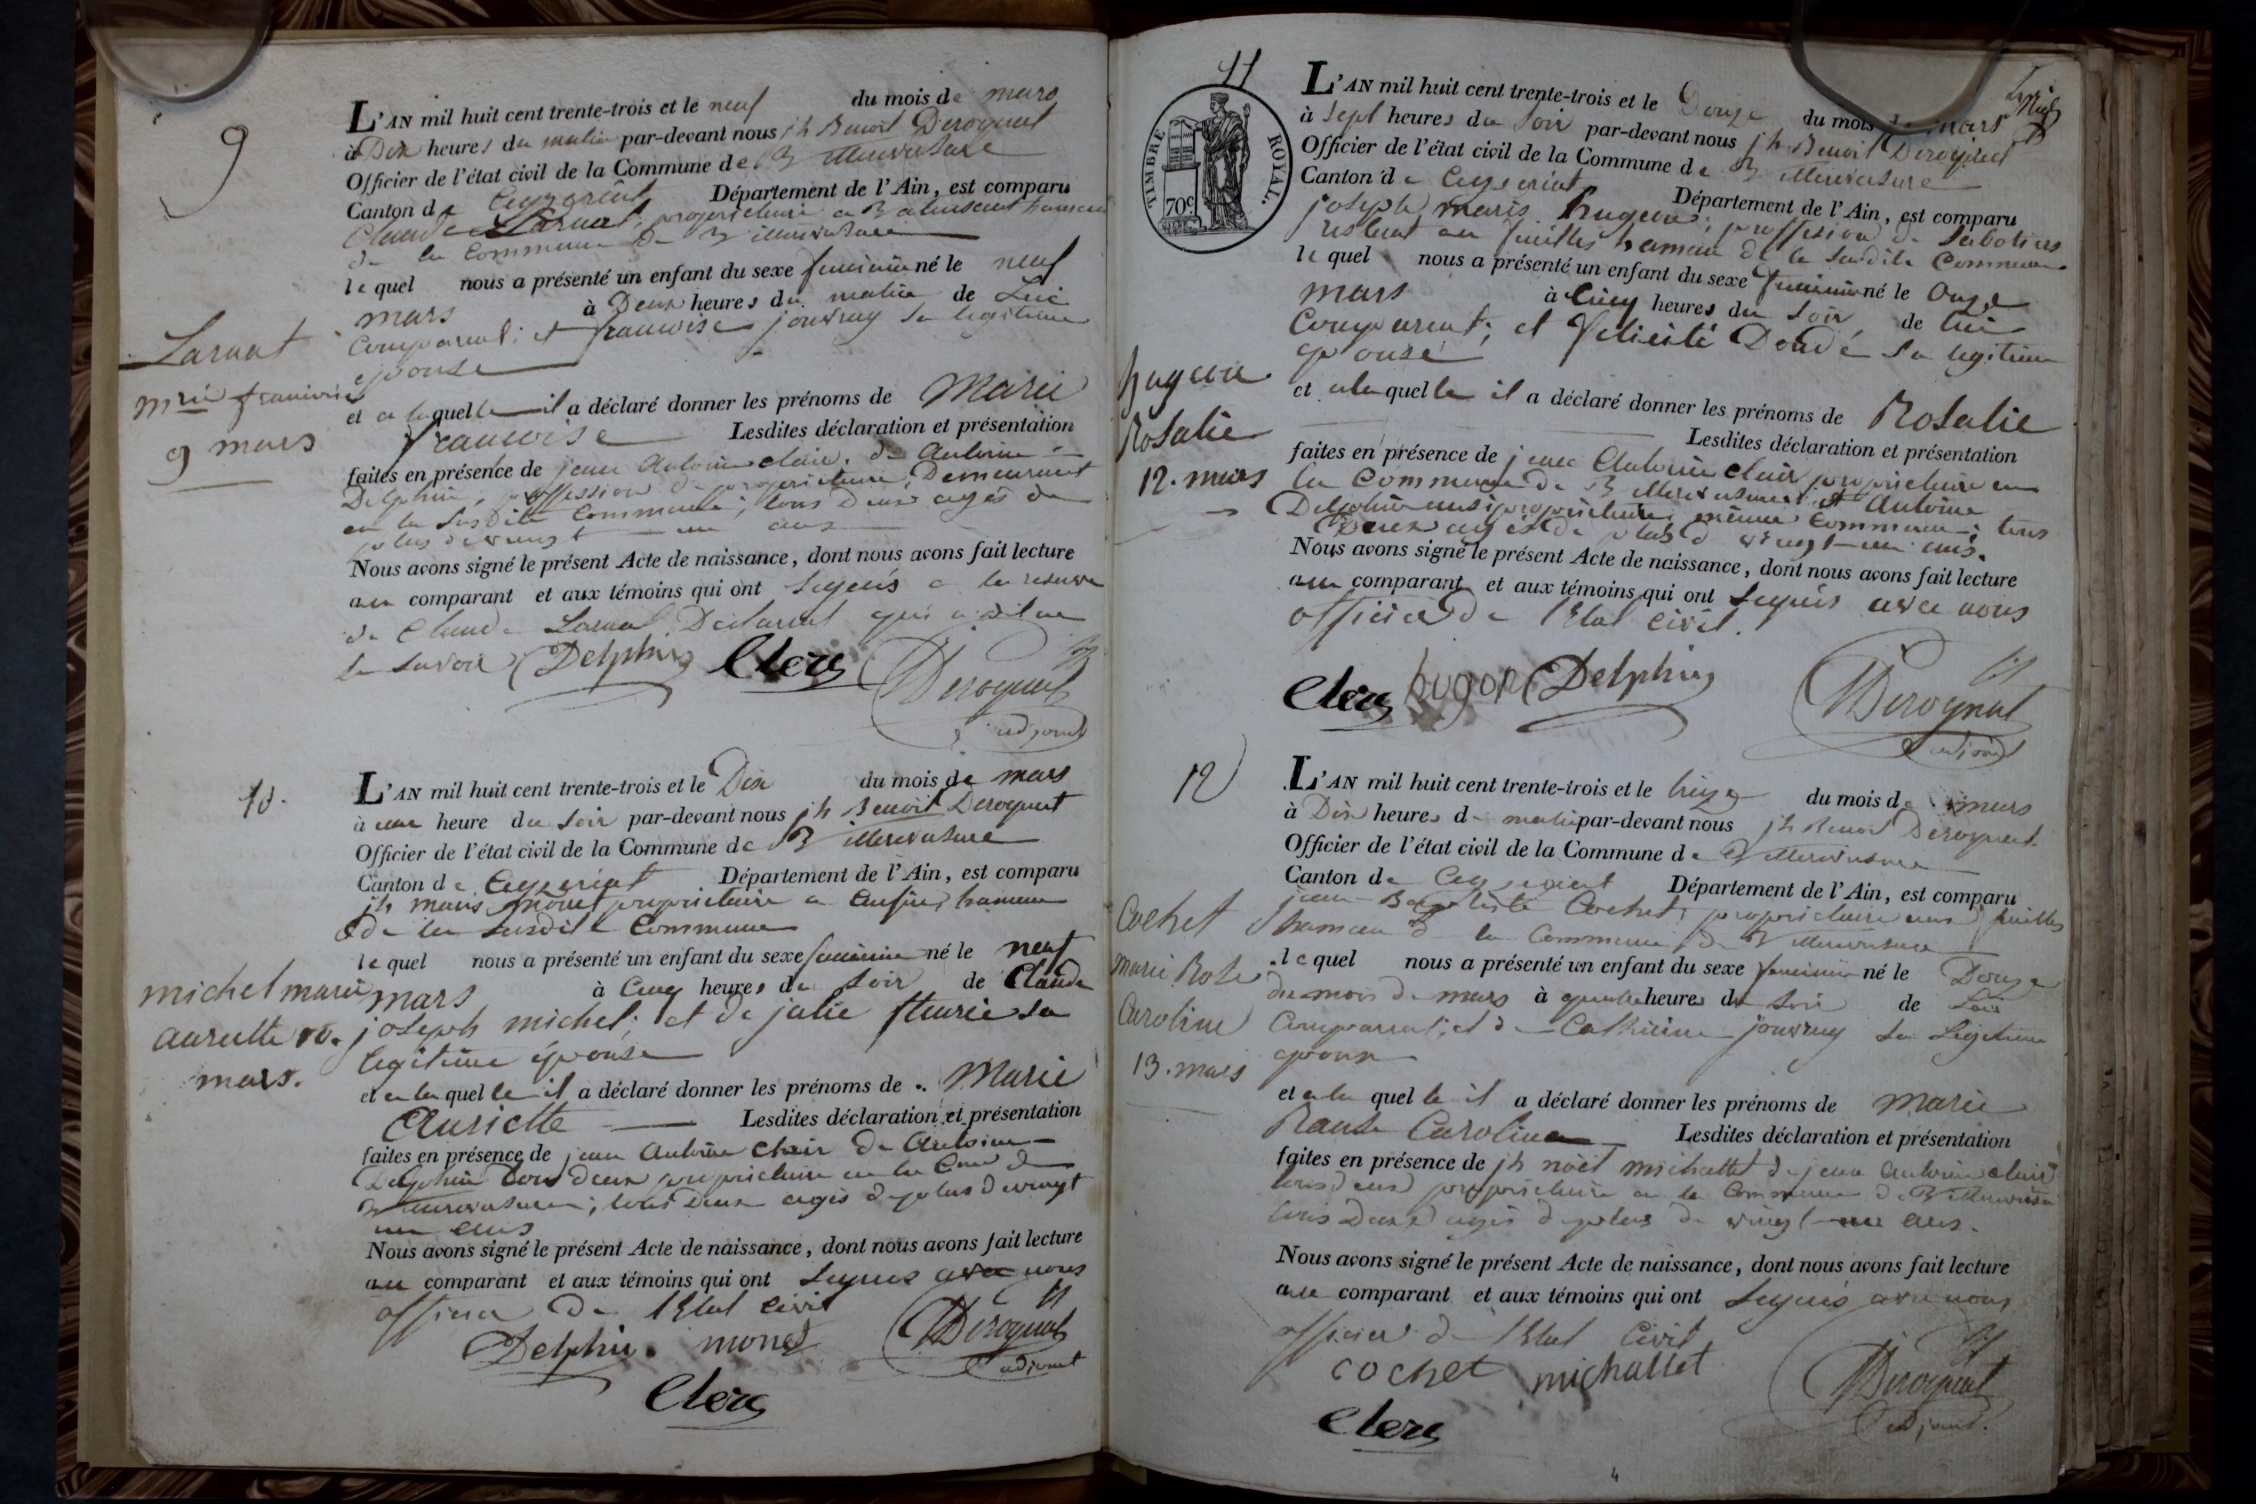 9
L'AN mil huit cent trente-trois et le neuf du mois de mars
à Dix heures du matin par-devant nous jh Benoit Derognat
Officier de l'état civil de la Commune de Villereversure
Canton de Ceyzeriat Département de l'Ain, est comparu
Claude Larnat, proprietaire a hameau
de la Commune de Villereversure
lequel nous a présenté un enfant du sexe feminin né le neuf
mars à Deux heures du matin de Lui
Comparant; et francoise jouvray sa legitime
epouse
Larnat
mrie francoise
9 mars
et a laquelle il a déclaré donner les prénoms de Marie
francoise Lesdites déclaration et présentation
faites en présence de jean Antoine clair, de Antoine
Delphin, proffession de proprietaire, Demeurant
en la susdite Commune; tous Deux agés de
plus de vingt un ans
Nous avons signé le présent Acte de naissance, dont nous avons fait lecture
au comparant et aux témoins qui ont signés a la reserve
de Claude Larnat Déclarant qui a dit ne
le savoir Delphin Clerc Derognat
adjoint
10.
L'AN mil huit cent trente-trois et le Dix du mois de mars
à une heure du soir par-devant nous jh Benoit Derognat
Officier de l'état civil de la Commune de Villereversure
Canton de Ceyzeriat Département de l'Ain, est comparu
jh marie monet proprietaire a hameau
de la susdite Commune
lequel nous a présenté un enfant du sexe feminin né le neuf
mars à Cinq heures du soir de Claude
joseph michel; et de julie fleurie sa
legitime épouse
michel marie
auriette 10.
mars.
et a laquelle il a déclaré donner les prénoms de Marie
Auriette Lesdites déclaration et présentation
faites en présence de jean Antoine clair de Antoine
Delphin tous deux proprietaire en la Cne de
Villereversure; tous Deux agés de plus de vingt
un ans
Nous avons signé le présent Acte de naissance, dont nous avons fait lecture
au comparant et aux témoins qui ont signés avec nous
officier de l'Etat civil
Delphin monet Derognat
adjoint
Clerc
11
TIMBRE ROYAL.
70c
L'AN mil huit cent trente-trois et le Douze du mois de mars
à sept heures du soir par-devant nous jh Benoit Derognat
Officier de l'état civil de la Commune de Villereversure
Canton de Ceyzeriat Département de l'Ain, est comparu
joseph marie hugeon, proffession de sabotier
restant au feuilles hameau de la susdite Commune
lequel nous a présenté un enfant du sexe feminin né le Onze
mars à Cinq heures du soir de lui
Comparant; et félicité Doudé sa legitime
epouse
hugeon
Rosalie
12. mars
et a laquelle il a déclaré donner les prénoms de Rosalie
Lesdites déclaration et présentation
faites en présence de jean Antoine clair proprietaire en
la Commune de Villereversure et Antoine
Delphin aussi proprietaire même Commune; tous
Deux agés de plus de vingt un ans.
Nous avons signé le présent Acte de naissance, dont nous avons fait lecture
au comparant et aux témoins qui ont signés avec nous
officier de l'Etat civil.
Clerc hugon Delphin Derognat
adjoint
12
L'AN mil huit cent trente-trois et le treize du mois de mars
à Dix heures du matin par-devant nous jh Benoit Derognat
Officier de l'état civil de la Commune de Villereversure
Canton de Ceyzeriat Département de l'Ain, est comparu
jean Baptiste Cochet, proprietaire aux feuilles
hameau de la Commune de Villereversure
lequel nous a présenté un enfant du sexe feminin né le Douze
du mois de mars à quatre heures du soir de Lui
Comparant; et de Catherine jouvray sa Legitime
epouse
Cochet
marie Rose
Caroline
13. mars
et a laquelle il a déclaré donner les prénoms de marie
Rause Caroline Lesdites déclaration et présentation
faites en présence de jh noël michallet de jean Antoine clair
tous deux proprietaire en la Commune de Villereversure
tous Deux agés de plus de vingt un ans.
Nous avons signé le présent Acte de naissance, dont nous avons fait lecture
au comparant et aux témoins qui ont signés avec nous
officier de l'Etat Civil
cochet michallet Derognat
adjoint.
Clerc
4